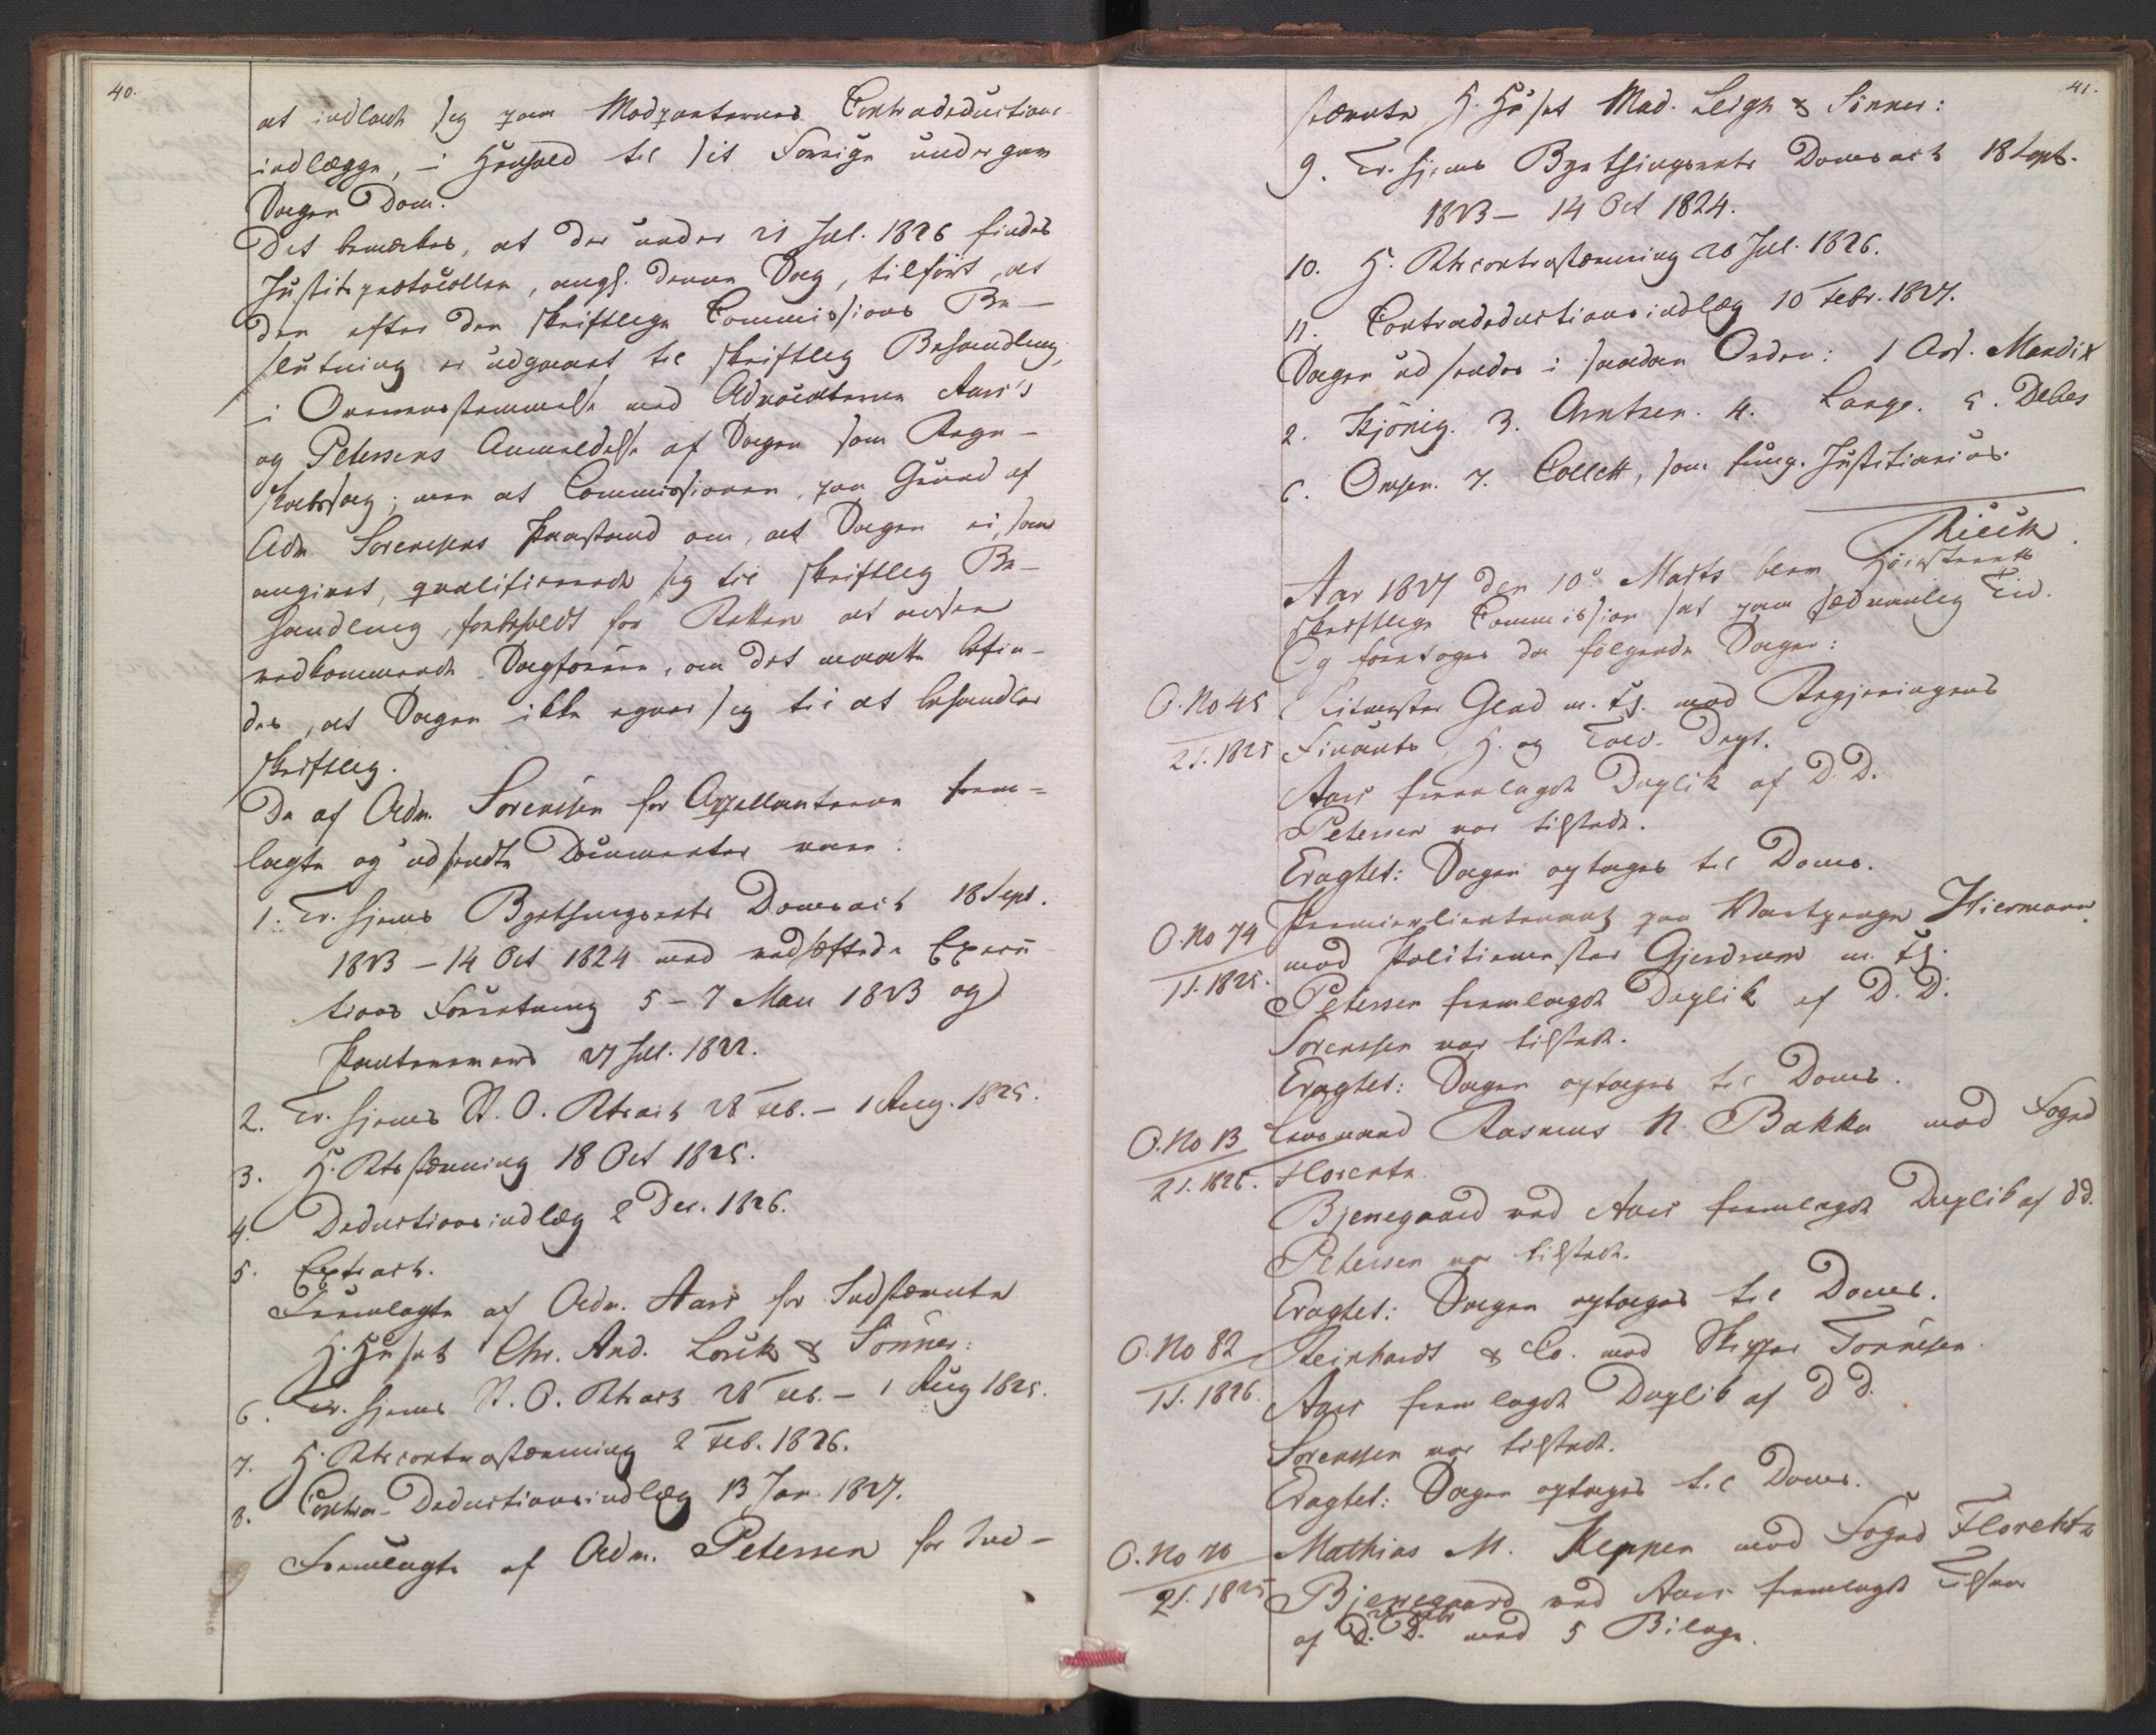 40.
at indlade sig paa Modparternes Contradeductions
indlægge, i Henhold til sit Forrige undergav
Sagen Dom.
Det bemærkes, at der under 21 Jul. 1826 findes
Justitsprotocollen, angl. denne Sag, tilført, at
den efter den skriftlige Commissions Be-
slutning er udgaaet til skriftlig Behandling,
i Overensstemmelse med Advocaterne Aars's
og Petersens Anmeldelse af Sagen som Regn-
skabssag; men at Commissionen, paa Grund af
Adv. Sorenssens Paastand om, at Sagen ei, som
angivet, qvalificerede sig til skriftlig Be-
handling, forbeholdt for Retten at ansee
vedkommende Sagførere, om det maatte befin-
des, at Sagen ikke egner sig til at behandles
skriftlig.
De af Adv. Sorenssen for Appellanterne frem-
lagte og udsendte Documenter vare:
1. Tr.hjems Bythingsrets Domsact 18 Sept.
1823 – 14 Oct 1824 med vedhæftede Execu
tions Forretning 5 – 7 Mai 1823 og
Panteverens 27 Jul. 1822.
2. Tr.hjems St. O. Rtsact 28 Feb. – 1 Aug. 1825.
3. H. Rtsstævning 18 Oct 1825.
4. Deductionsindlæg 2 Dec. 1826.
5. Extract.
Fremlagte af Adv. Aars for Indstævnte
H. Huset Chr. And. Lorck & Sönner:
6. Tr.hjems St. O. Rtsact 28 Feb. – 1 Aug 1825.
7. H. Rtscontrastævning 2 Feb. 1826.
8. Contra-Deductionsindlæg 13 Jan. 1827.
Fremlagte af Adv. Petersen for Ind-
41.
stævnte H. Huset Mad. Leigh & Sönner:
9. Tr.hjems Bythingsrets Domsact 18 Sept.
1823 – 14 Oct 1824.
10. H. Rtscontrastævning 20 Jul. 1826.
11. Contradeductionsindlæg 10 Febr. 1827.
Sagen udsendes i saadan Orden: 1 Ass. Mandix
2. Kjönig. 3. Arntzen. 4. Lange. 5. Debes
6. Omsen. 7. Collett, som fung. Justitiarius.
Rieck.
Aar 1827 den 10de Marts blev Höiesterets
skriftlige Commission sat paa sædvanlig Tid.
Og foretoges da følgende Sager:
O. No 45 / 2 S. 1825 Ritmester Glad m. fl. mod Regjeringens
Finants, H. og Told-Dept.
Aars fremlagde Duplik af D. D.
Petersen var tilstede.
Eragtet: Sagen optages til Doms.
O. No 74 / 1 S. 1825. Premierlieutenant paa Vartpenge Hiermann
mod Politiemester Gjerdrum m. fl.
Petersen fremlagde Duplik af D. D.
Sorenssen var tilstede.
Eragtet: Sagen optages til Doms.
O. No 13 / 2 S. 1826. Rasmus N. Bakka mod Foged
Florentz.
Bjerregaard ved Aars fremlagde Duplik af d d.
Petersen var tilstede.
Eragtet: Sagen optages til Doms.
O. No 82 / 1 S. 1826. Reinhardt & Co. mod Skipper Tonnesen.
Aars fremlagde Duplik af D d.
Sorenssen var tilstede.
Eragtet: Sagen optages til Doms.
O. No 70 / 2 S. 1825 Mathias M. Keppen mod Foged Florentz
Bjerregaard ved Aars fremlagde Tilsvar
af D. D. med 5 Bilage.